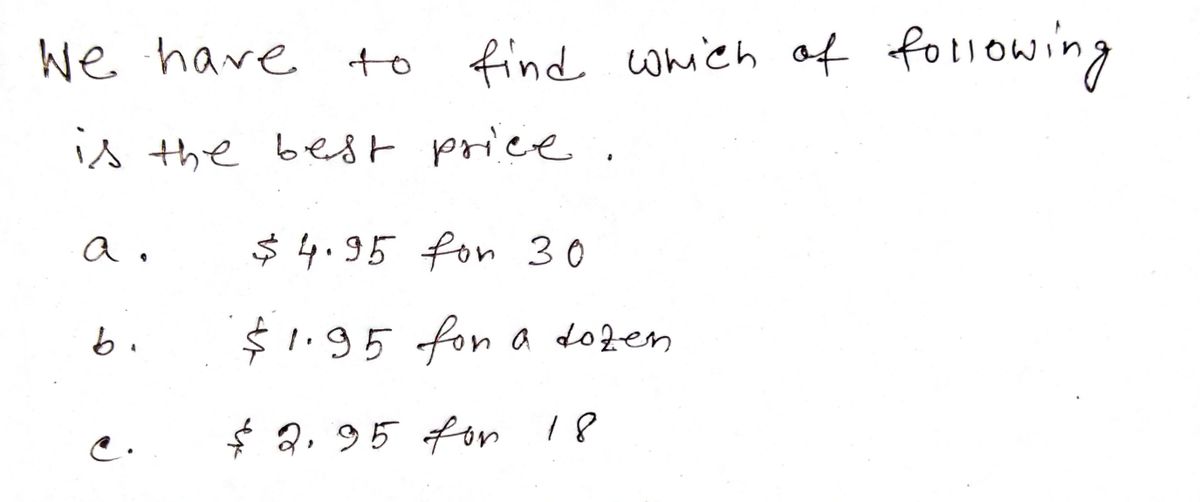 We have to find which of following
is the best price.
a. $ 4.95 for 30
b. $ 1.95 for a dozen
c. $ 2.95 for 18